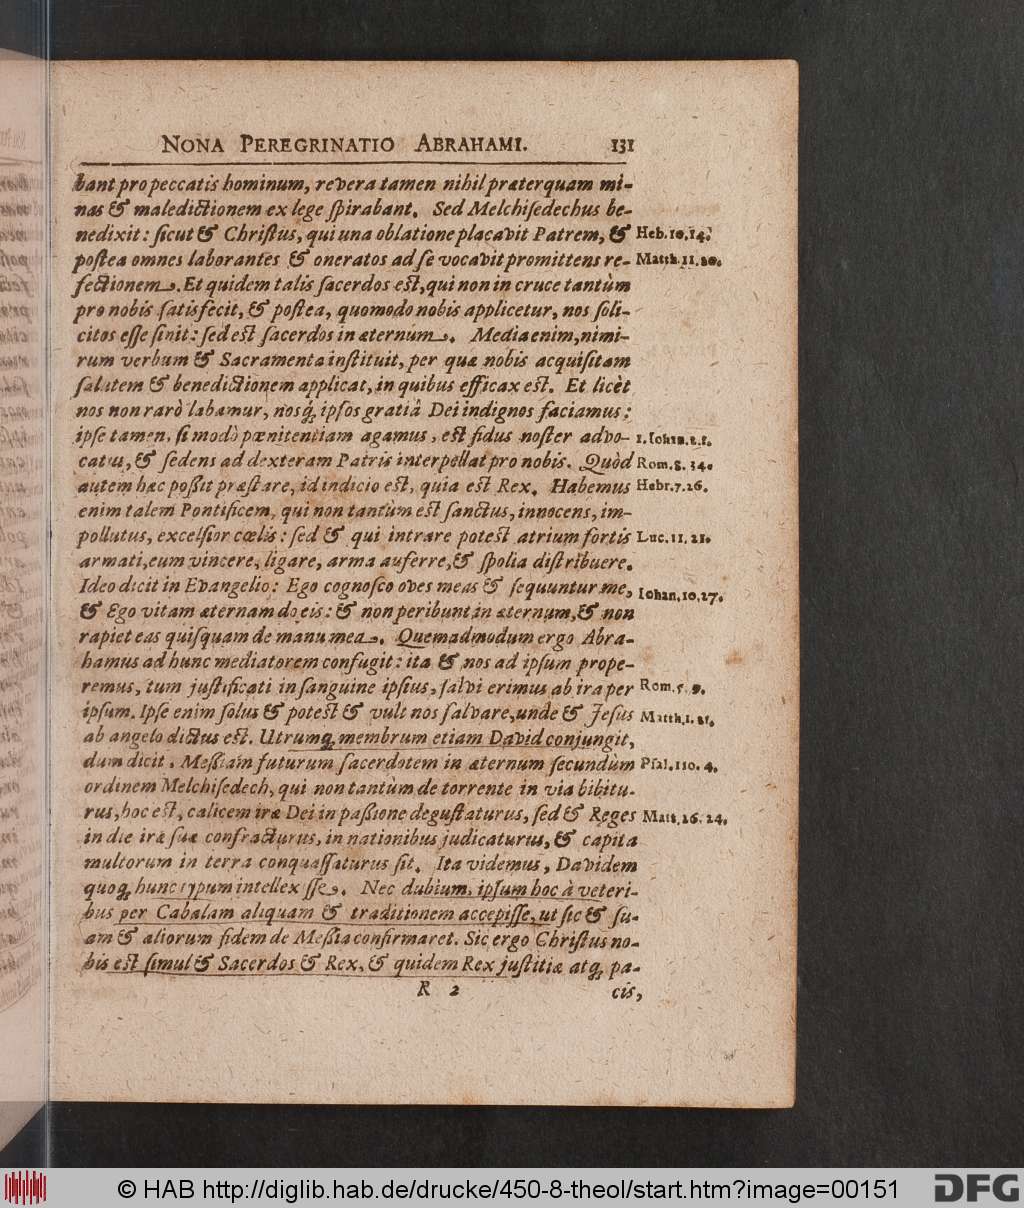 NONA PEREGRINATIO ABRAHAMI. 131
bant pro peccatis hominum, revera tamen nihil præterquam mi-
nas & maledictionem ex lege ſpirabant. Sed Melchiſedechus be-
nedixit: ſicut & Chriſtus, qui una oblatione placavit Patrem, & Heb. 10, 14.
poſtea omnes laborantes & oneratos ad ſe vocavit promittens re- Matth. 11. 20.
fectionem. Et quidem talis ſacerdos est, qui non in cruce tantùm
pro nobis ſatisfecit, & poſtea, quomodo nobis applicetur, nos ſoli-
citos eſſe ſinit: ſed est ſacerdos in æternum. Media enim, nimi-
rum verbum & Sacramenta inſtituit, per quæ nobis acquiſitam
ſalutem & benedictionem applicat, in quibus efficax est. Et licèt
nos non rarò labamur, nosq́; ipſos gratiâ Dei indignos faciamus:
ipſe tamen, ſi modò pœnitentiam agamus, est fidus noſter advo- 1. Iohan. 2. 1.
catus, & ſedens ad dexteram Patris interpellat pro nobis. Quòd Rom. 8. 34.
autem hæc poßit præſtare, id indicio est, quia est Rex. Habemus Hebr. 7. 26.
enim talem Pontificem, qui non tantùm est ſanctus, innocens, im-
pollutus, excelſior cœlis: ſed & qui intrare potest atrium fortis Luc. 11. 21.
armati, eum vincere, ligare, arma auferre, & ſpolia diſtribuere.
Ideo dicit in Evangelio: Ego cognoſco oves meas & ſequuntur me, Iohan. 10, 27.
& Ego vitam æternam do eis: & non peribunt in æternum, & non
rapiet eas quiſquam de manu mea. Quemadmodum ergo Abra-
hamus ad hunc mediatorem confugit: ita & nos ad ipſum prope-
remus, tum juſtificati in ſanguine ipſius, ſalvi erimus ab ira per Rom. 5. 9.
ipſum. Ipſe enim ſolus & potest & vult nos ſalvare, unde & Jeſus Matth. 1. 21.
ab angelo dictus est. Utrumq; membrum etiam David conjungit,
dum dicit. Meßiam futurum ſacerdotem in æternum ſecundùm Pſal. 110. 4.
ordinem Melchiſedech, qui non tantùm de torrente in via bibitu-
rus, hoc est, calicem iræ Dei in paßione deguſtaturus, ſed & Reges Matt. 26. 24.
in die iræ ſuæ confracturus, in nationibus judicaturus, & capita
multorum in terra conquaſſaturus ſit. Ita videmus, Davidem
quoq; hunc typum intellexiſſe. Nec dubium, ipſum hoc à veteri-
bus per Cabalam aliquam & traditionem accepiſſe, ut ſic & ſu-
am & aliorum fidem de Meßia confirmaret. Sic ergo Chriſtus no-
bis est ſimul & Sacerdos & Rex, & quidem Rex juſtitiæ atq; pa-
R 2 cis,
© HAB http://diglib.hab.de/drucke/450-8-theol/start.htm?image=00151 DFG